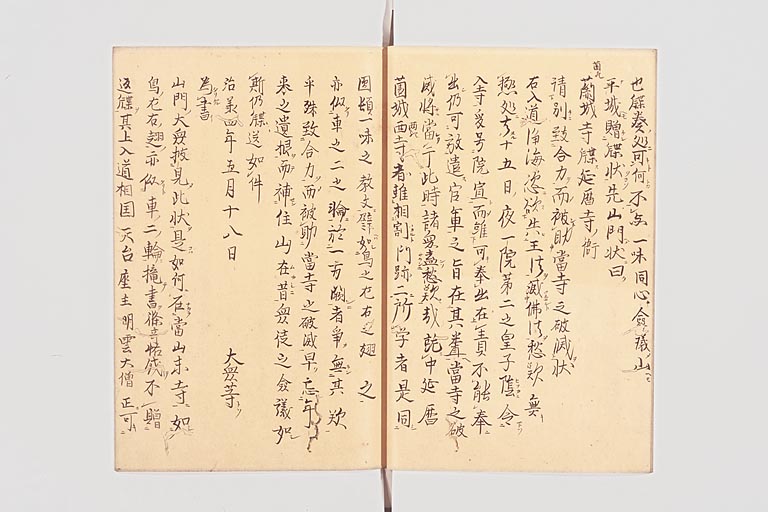 也牒奏処可何不与一味同心、僉議山
平城贈牒状先山門状曰
薗城寺牒延暦寺衙
請別致合力而被助当寺之破滅状
右入道浄海恣欲失王法滅仏法愁歎無
極処去十五日夜一院第二之皇子蔭令
入寺、号院宣而雖可奉出在責不能奉
出仍可放遣官軍之旨在其聞当寺之破
滅将当于此時諸衆盍愁歎哉就中延暦
薗城両寺者雖相割門跡二所学者是同
円頓一味之教文譬如鳥之左右之翅之
亦似車之二之輪於一方闕者争無其歎
乎殊致合力而被助当寺之破滅早忘年
来之遺恨而補住山在昔衆徒之僉議如
斯仍牒送如件
治承四年五月十八日
大衆等
為書
山門大衆披見此状是如何右当山末寺如
鳥左右翅亦似車二輪掩書条奇怪成不贈
返牒其上入道相国天台座主明雲大僧正可